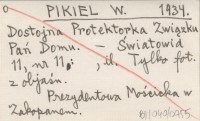 PIKIEL W. 1934.
Dostojna Protektorka Związku
Pań Domu. - Światowid
11, nr 11, , il. Tylko fot.
z objaśn.
Prezydentowa Mościcka w
Zakopanem.